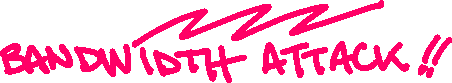 BANDWIDTH ATTACK!!